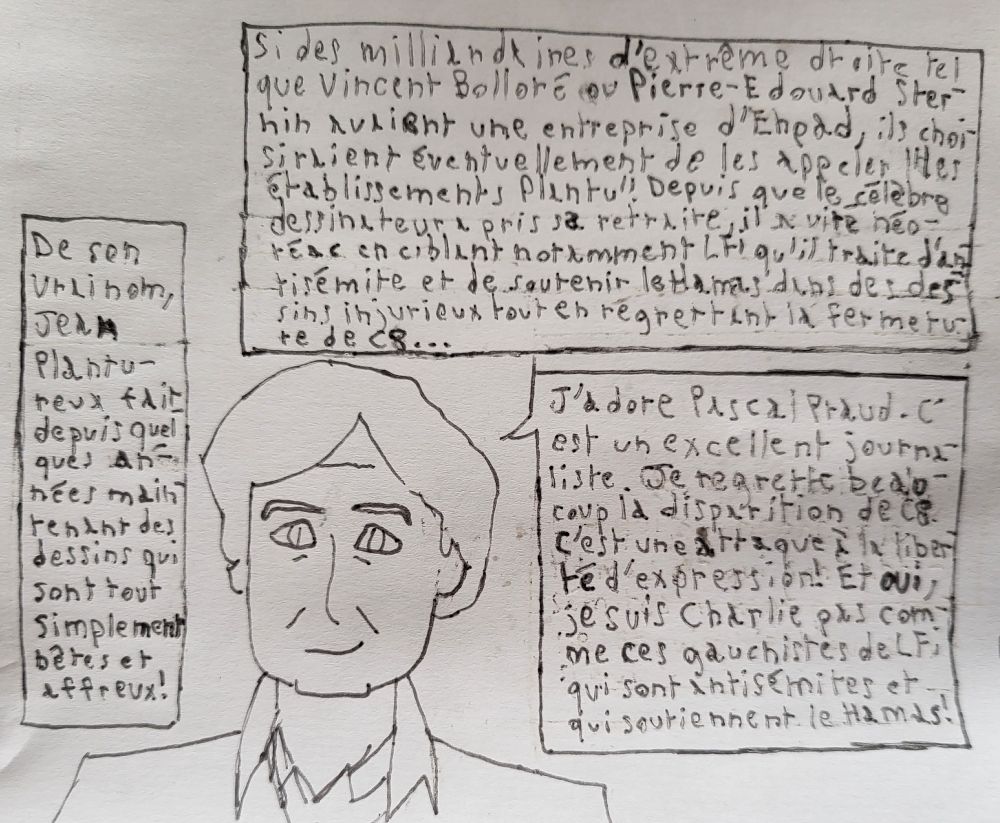 Si des milliardaires d'extrême droite tel
que Vincent Bolloré ou Pierre-Edouard Ster-
nin avaient une entreprise d'Ehpad, ils choi-
siraient éventuellement de les appeler "les
établissements Plantu"! Depuis que le célèbre
dessinateur a pris sa retraite, il a vite néo-
réac en ciblant notamment LFI qu'il traite d'an
tisémite et de soutenir le Hamas dans des des-
sins injurieux tout en regrettant la fermetu-
re de C8...
De son
vrai nom,
Jean
Plantu-
reux fait
depuis quel
ques an-
nées main
tenant des
dessins qui
sont tout
simplement
bêtes et
affreux!
J'adore Pascal Praud. C'
est un excellent journa-
liste. Je regrette beau-
coup la disparition de C8.
C'est une attaque à la liber
té d'expression! Et oui,
je suis Charlie pas com-
me ces gauchistes de LFI
qui sont antisémites et
qui soutiennent le Hamas!